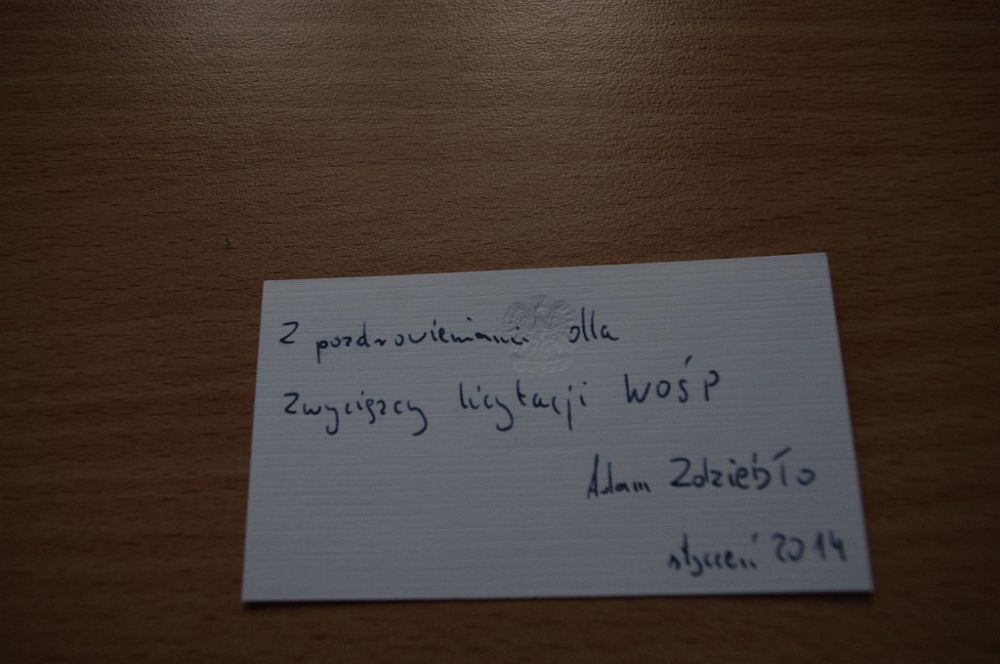 Z pozdrowieniami dla
zwycięzcy licytacji WOŚP
Adam Zdziebło
styczeń 2014